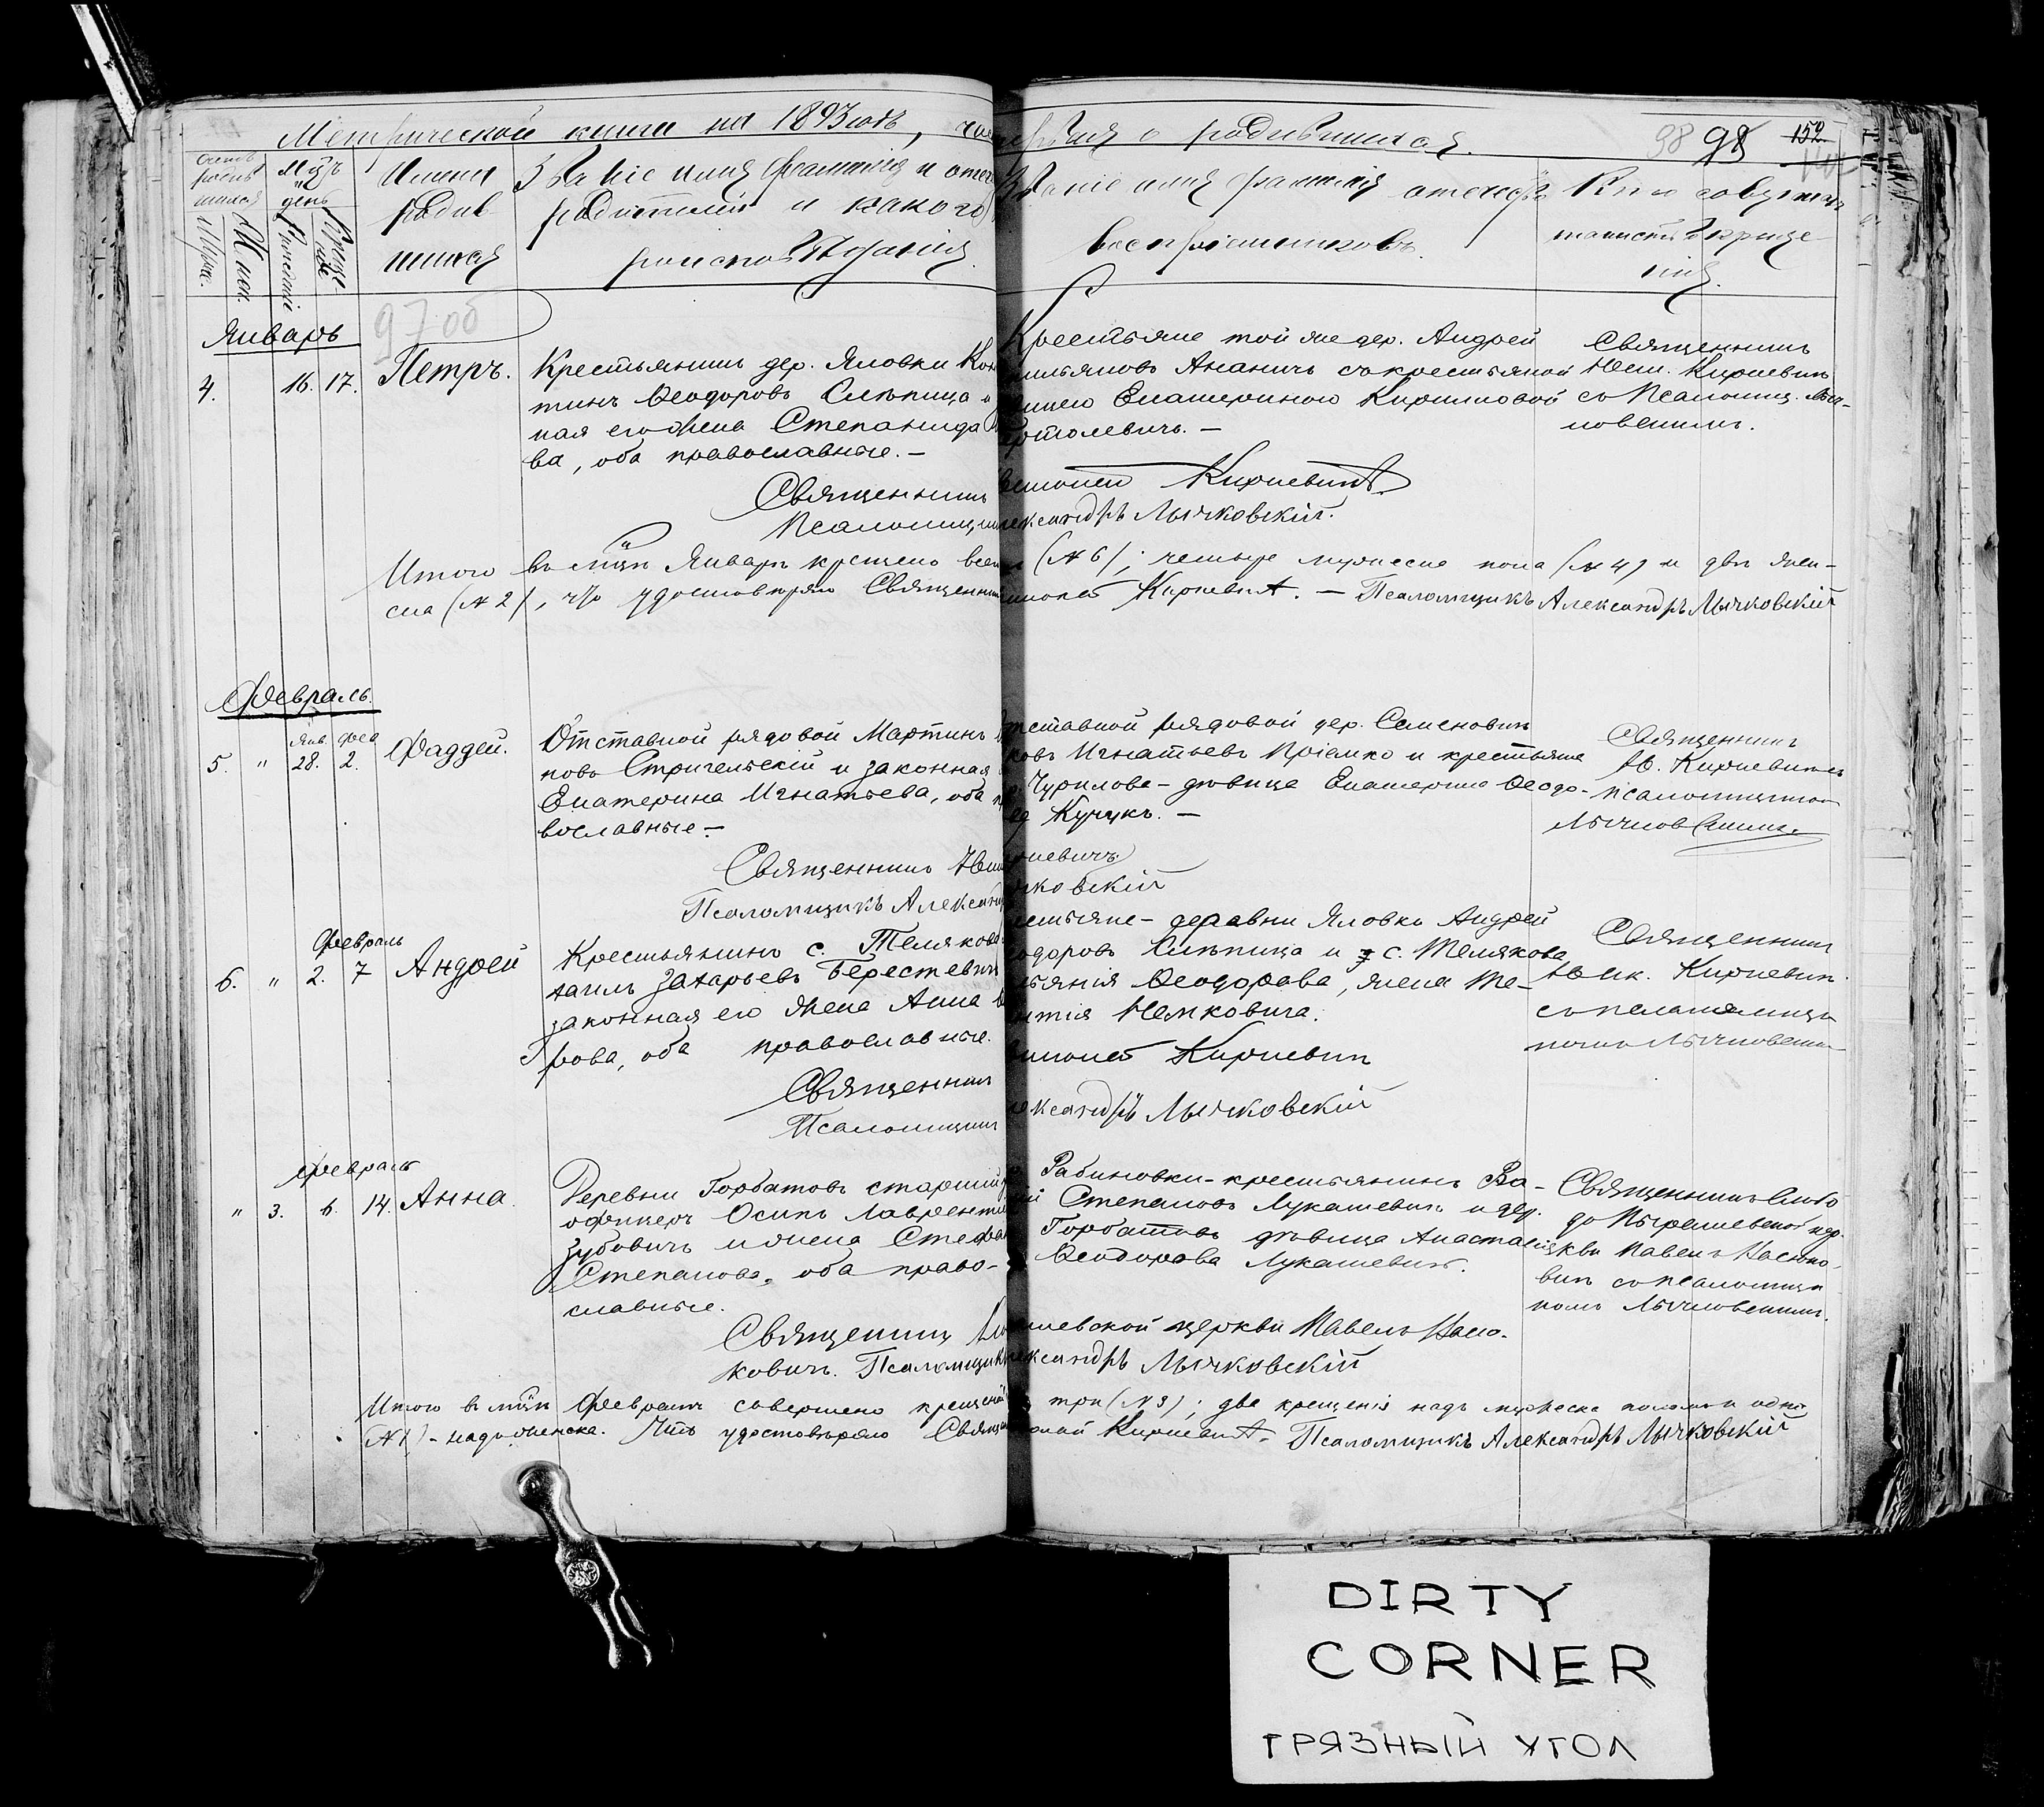 Метрической книги на 1893 годъ, часть первая о родившихся.
98 98 152
Счетъ родив шихся
Мужс.
Жен.
Мѣсяцъ и день
Рожденія
Креще нія
Имена родив шихся
Званіе имя фамилія и отече
родителей и какого
вѣроисповѣданія.
Званіе имя фамилія отечество
воспріемниковъ.
Кто совершалъ
таинство креще
нія.
97 об
Январь
4. 16. 17. Петръ.
Крестьянинъ дер. Яловки Кон
тинъ Ѳеодоровъ Слѣпица и
ная его жена Степанида
ва, оба православные. –
Крестьяне той же дер. Андрей
мильяновъ Ананичъ съ крестьянкой
Екатериною Кирилловой
–
Священникъ
Кирневичъ
со Псаломщ. Лыч
ковскимъ.
Священникъ Кирневичъ
Псаломщикъ Александръ Лычковскій.
Итого въ мцѣ Январѣ крещено всего (№ 6); четыре мужеска пола (№ 4) и два жен-
ска (№ 2), что удостовѣряю Священникъ Кирневичъ. – Псаломщикъ Александръ Лычковскій
Февраль.
Янв фев
5. " 28. 2. Фаддей.
Отставной рядовой Мартинъ
новъ Стригельскій и законная
Екатерина Игнатьева, оба пра
вославные –
Отставной рядовой дер. Семеновичъ
ковъ Игнатьевъ Пріемко и крестьянка
Чурилова – дѣвица Екатерина Ѳеодо-
Кучукъ. –
Священникъ
Кирневичъ
псаломщикомъ
Лычковскимъ.
Священникъ Кирневичъ
Псаломщикъ Александръ Лычковскій
Февраль
6. " 2. 7 Андрей
Крестьянинъ с. Телякова
хаилъ Захарьевъ Берестевичъ
законная его жена Анна
рова, оба православные.
Крестьяне – деревни Яловки Андрей
Ѳеодоровъ Слѣпица и с. Телякова
Ѳеодорова, жена Те-
рентія Немковича.
Священникъ
Кирневичъ.
со псаломщи
комъ Лычковскимъ
Священникъ Кирневичъ
Псаломщикъ Александръ Лычковскій
Февраль
" 3. 6. 14. Анна.
Деревни Горбатовъ старшій
офицеръ Осипъ Лаврентіевъ
Зубовичъ и жена Стефа
Степанова, оба право-
славные.
Рабиновки – крестьянинъ Ва-
Степановъ Лукашевичъ и дер.
Горбатовъ дѣвица Анастасія
Ѳеодорова Лукашевичъ.
Священникъ Слобо
до Пырашевской цер-
кви Павелъ Насюко-
вичъ со псаломщи
комъ Лычковскимъ.
Священникъ Пырашевской церкви Павелъ Насю-
ковичъ. Псаломщикъ Александръ Лычковскій
Итого въ мцѣ Февралѣ совершено крещеній три (№ 3); два крещенія надъ мужеска поломъ и одно
(№ 1) – надъ женска. Что удостовѣряю Священникъ Кирневичъ. Псаломщикъ Александръ Лычковскій
DIRTY
CORNER
ГРЯЗНЫЙ УГОЛ